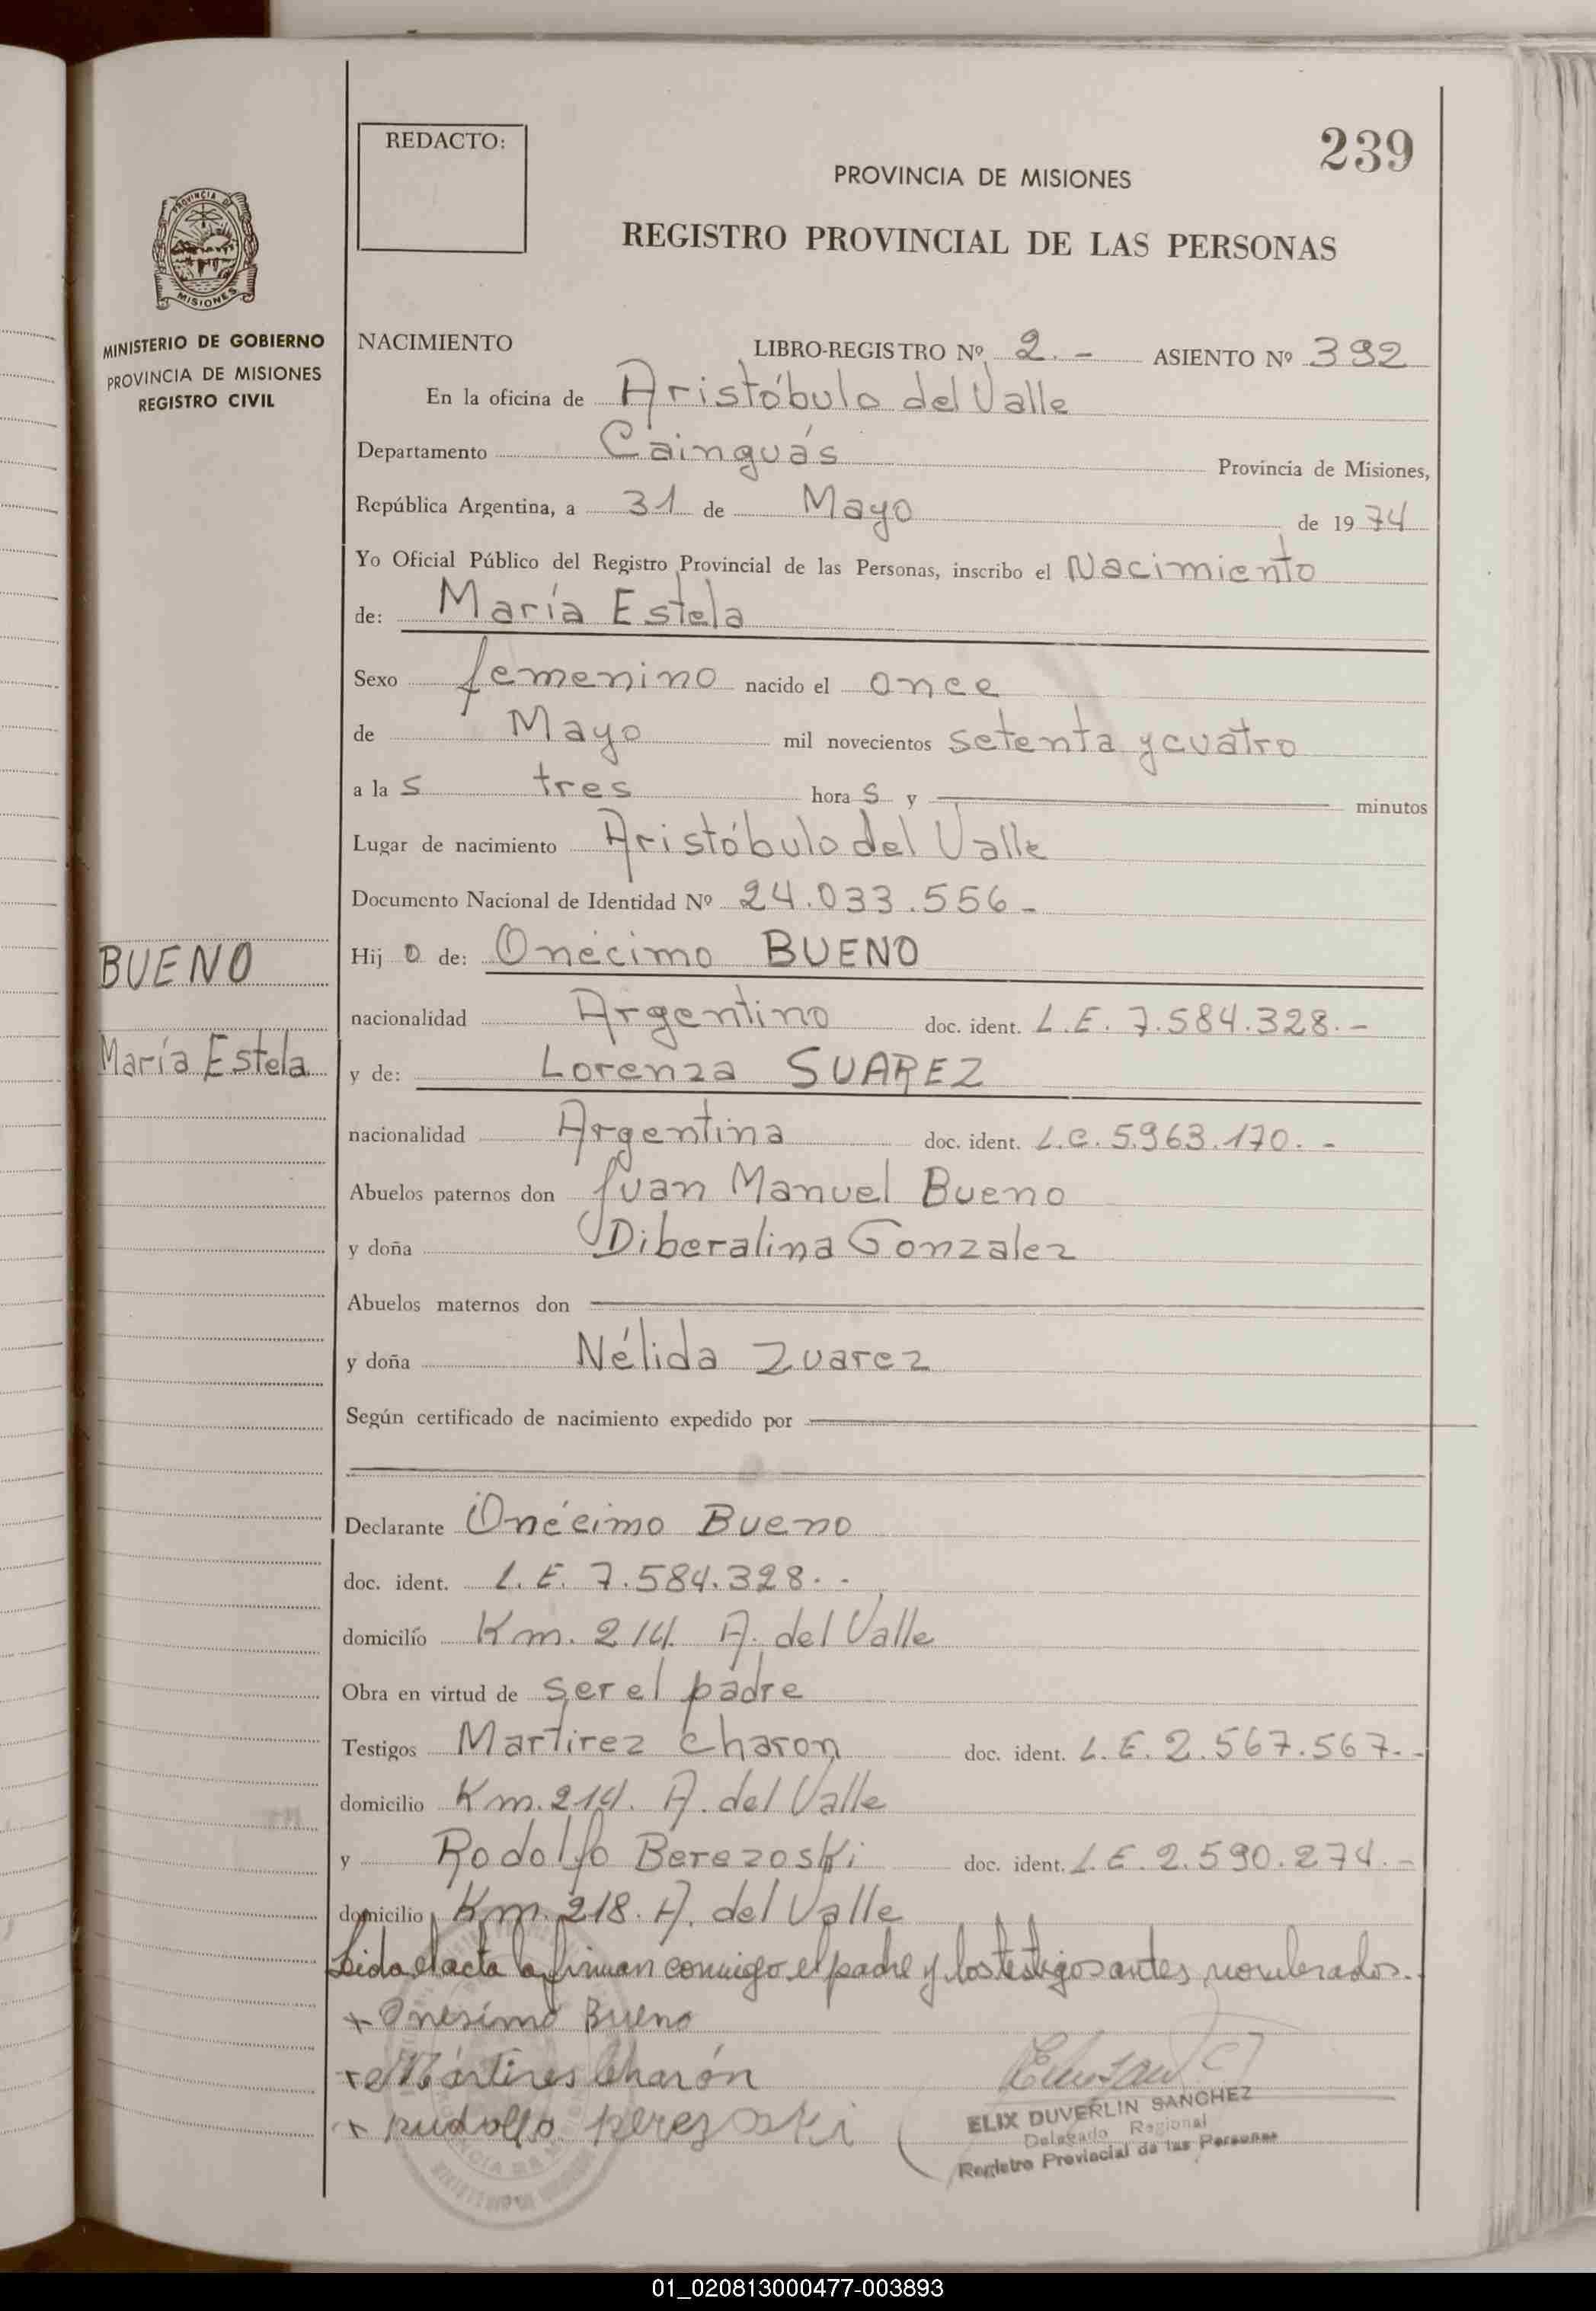 239
REDACTO:
PROVINCIA DE MISIONES
REGISTRO PROVINCIAL DE LAS PERSONAS
PROVINCIA DE
MISIONES
MINISTERIO DE GOBIERNO
PROVINCIA DE MISIONES
REGISTRO CIVIL
NACIMIENTO LIBRO-REGISTRO Nº 2.- ASIENTO Nº 392
En la oficina de Aristóbulo del Valle
Departamento Cainguás Provincia de Misiones,
República Argentina, a 31 de Mayo de 1974
Yo Oficial Público del Registro Provincial de las Personas, inscribo el Nacimiento
de: María Estela
Sexo femenino nacido el once
de Mayo mil novecientos setenta y cuatro
a la s tres hora s y minutos
Lugar de nacimiento Aristóbulo del Valle
Documento Nacional de Identidad Nº 24.033.556-
BUENO
María Estela
Hij o de: Onécimo BUENO
nacionalidad Argentino doc. ident. L.E. 7.584.328.-
y de: Lorenza SUAREZ
nacionalidad Argentina doc. ident. L.C. 5.963.170.-
Abuelos paternos don Juan Manuel Bueno
y doña Diberalina Gonzalez
Abuelos maternos don
y doña Nélida Zuarez
Según certificado de nacimiento expedido por
Declarante Onécimo Bueno
doc. ident. L.E. 7.584.328.-
domicilio Km. 214. A. del Valle
Obra en virtud de ser el padre
Testigos Martirez Charon doc. ident. L.E. 2.567.567.-
domicilio Km. 214. A. del Valle
y Rodolfo Berezoski doc. ident. L.E. 2.590.274.-
domicilio Km. 218. A. del Valle
Leida el acta la firman conmigo el padre y los testigos antes nombrados.
+ Onesimo Bueno
+ Mártires Charón
+ Rudolfo Berezoski
ELIX DUVERLIN SANCHEZ
Delegado Regional
Registro Provincial de las Personas
01_020813000477-003893